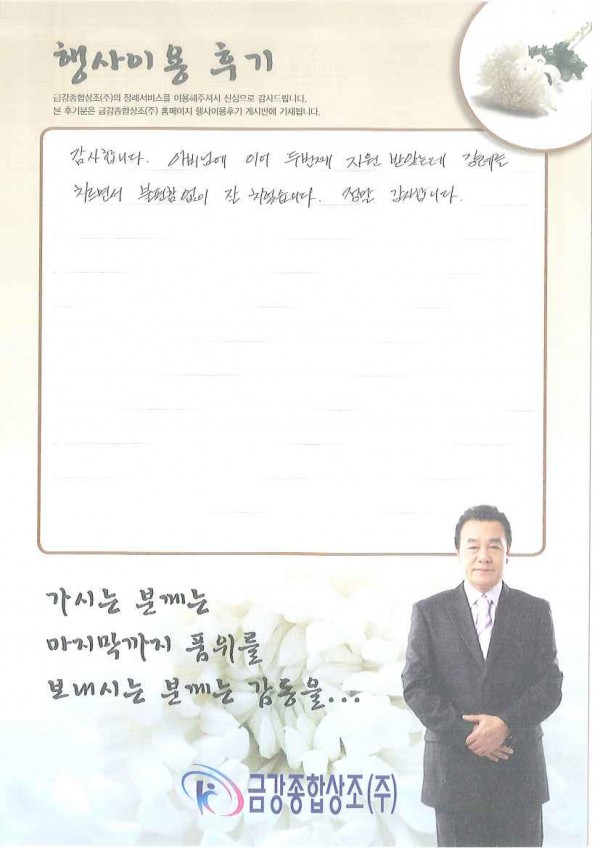 행사이용 후기
금강종합상조(주)의 장례서비스를 이용해주셔서 진심으로 감사드립니다.
본 후기문은 금강종합상조(주) 홈페이지 행사이용후기 게시판에 기재됩니다.
감사합니다. 아버님에 이어 두번째 지원 받았는데 장례를
치르면서 불편함 없이 잘 치렀습니다. 정말 감사합니다.
가시는 분께는
마지막까지 품위를
보내시는 분께는 감동을...
금강종합상조(주)